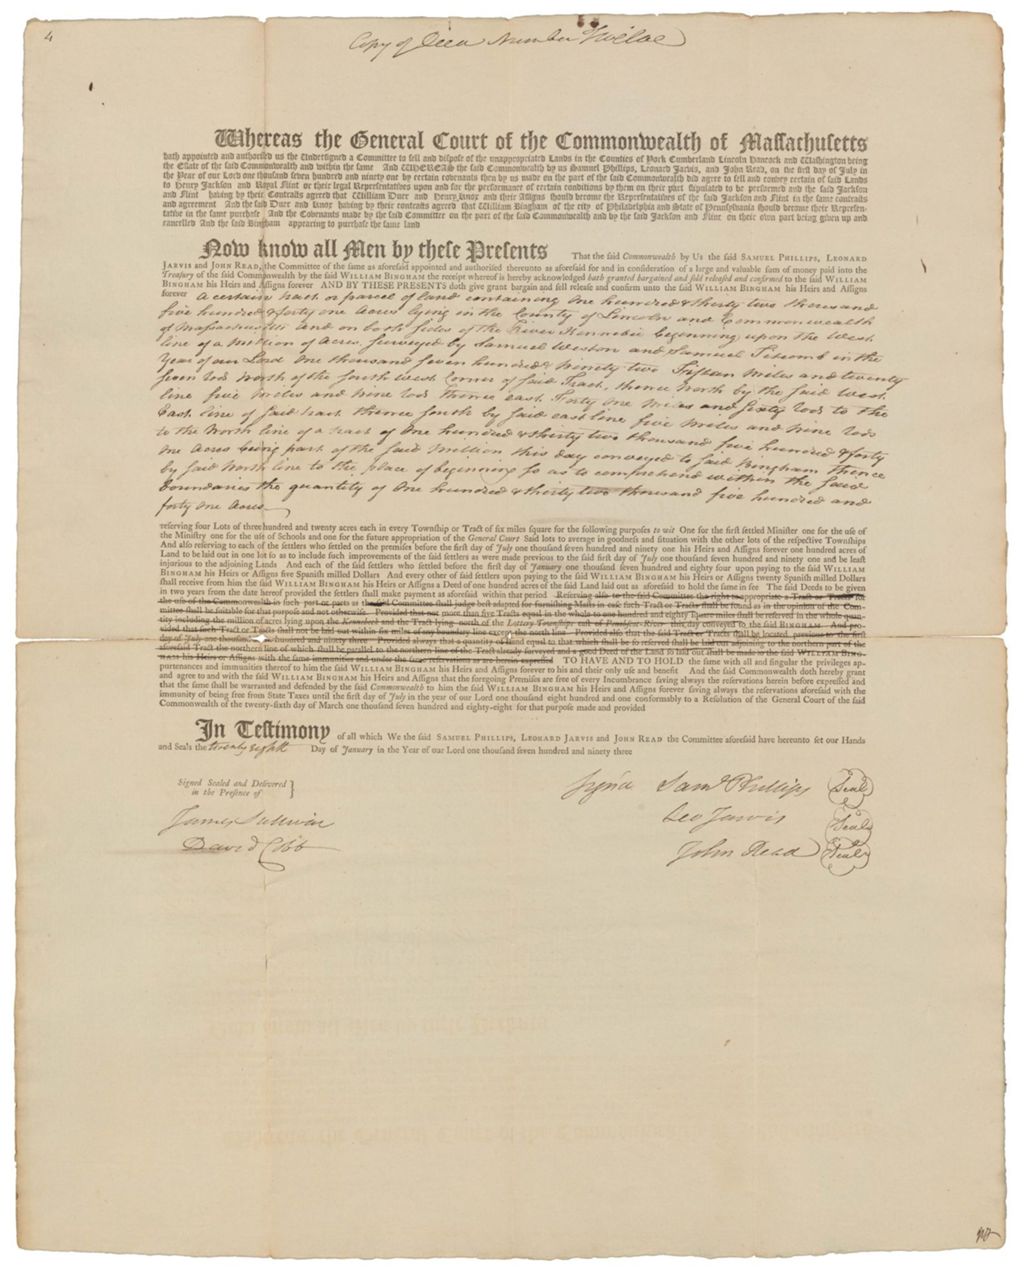 4
Copy of Deed Number Twelve
Whereas the General Court of the Commonwealth of Massachusetts
hath appointed and authorised us the Undersigned a Committee to sell and dispose of the unappropriated Lands in the Counties of York Cumberland Lincoln Hancock and Washington being
the Estate of the said Commonwealth and within the same And WHEREAS the said Commonwealth by us Samuel Phillips, Leonard Jarvis, and John Read, on the first day of July in
the Year of our Lord one thousand seven hundred and ninety one by certain covenants then by us made on the part of the said Commonwealth did agree to sell and convey certain of said Lands
to Henry Jackson and Royal Flint or their legal Representatives upon and for the performance of certain conditions by them on their part stipulated to be performed and the said Jackson
and Flint having by their Contracts agreed that William Duer and Henry Knox and their Assigns should become the Representatives of the said Jackson and Flint in the same contracts
and agreement And the said Duer and Knox having by their contracts agreed that William Bingham of the city of Philadelphia and State of Pennsylvania should become their Represen-
tative in the same purchase And the Covenants made by the said Committee on the part of the said Commonwealth and by the said Jackson and Flint on their own part being given up and
cancelled And the said Bingham appearing to purchase the same land
Now know all Men by these Presents That the said Commonwealth by Us the said SAMUEL PHILLIPS, LEONARD
JARVIS and JOHN READ, the Committee of the same as aforesaid appointed and authorised thereunto as aforesaid for and in consideration of a large and valuable sum of money paid into the
Treasury of the said Commonwealth by the said WILLIAM BINGHAM the receipt whereof is hereby acknowledged hath granted bargained and sold released and confirmed to the said WILLIAM
BINGHAM his Heirs and Assigns forever AND BY THESE PRESENTS doth give grant bargain and sell release and confirm unto the said WILLIAM BINGHAM his Heirs and Assigns
forever A certain tract or parcel of land containing One hundred & thirty two thousand
five hundred & forty one Acres lying in the County of Lincoln and Commonwealth
of Massachusetts and on both sides of the River Kennebec beginning upon the West
line of a Million of Acres, surveyed by Samuel Weston and Samuel Titcomb in the
Year of our Lord One thousand seven hundred & ninety two Fifteen Miles and twenty
seven rods North of the South West Corner of said Tract, thence North by the said West
line five Miles and nine rods thence east Forty One Miles and sixty rods to the
East line of said tract thence south by said east line five Miles and nine rods
to the North line of a tract of One hundred & thirty two thousand five hundred & forty
One Acres being part of the said Million this day conveyed to said Bingham thence
by said North line to the place of beginning so as to comprehend within the said
boundaries the quantity of One hundred & thirty two thousand five hundred and
forty one Acres
reserving four Lots of three hundred and twenty acres each in every Township or Tract of six miles square for the following purposes to wit One for the first settled Minister one for the use of
the Ministry one for the use of Schools and one for the future appropriation of the General Court Said lots to average in goodness and situation with the other lots of the respective Townships
And also reserving to each of the settlers who settled on the premises before the first day of July one thousand seven hundred and ninety one his Heirs and Assigns forever one hundred acres of
Land to be laid out in one lot so as to include such improvements of the said settlers as were made previous to the said first day of July one thousand seven hundred and ninety one and be least
injurious to the adjoining Lands And each of the said settlers who settled before the first day of January one thousand seven hundred and eighty four upon paying to the said WILLIAM
BINGHAM his Heirs or Assigns five Spanish milled Dollars And every other of said settlers upon paying to the said WILLIAM BINGHAM his Heirs or Assigns twenty Spanish milled Dollars
shall receive from him the said WILLIAM BINGHAM his Heirs or Assigns a Deed of one hundred acres of the said Land laid out as aforesaid to hold the same in fee The said Deeds to be given
in two years from the date hereof provided the settlers shall make payment as aforesaid within that period Reserving also to the said Committee the right to appropriate a Tract or Tracts for
the use of the Commonwealth in such part or parts as the said Committee shall judge best adapted for furnishing Masts in case such Tract or Tracts shall be found as in the opinion of the Com-
mittee shall be suitable for that purpose and not otherwise Provided that not more than five Tracts equal in the whole to one hundred and eighty square miles shall be reserved in the whole quan-
tity including the million of acres lying upon the Kennebeck and the Tract lying north of the Lottery Townships east of Penobscot River this day conveyed to the said BINGHAM And pro-
vided that such Tract or Tracts shall not be laid out within six miles of any boundary line except the north line Provided also that the said Tract or Tracts shall be located previous to the first
day of July one thousand hundred and ninety three Provided always that a quantity of Land equal to that which shall be so reserved shall be laid out adjoining to the northern part of the
aforesaid Tract the northern line of which shall be parallel to the northern line of the Tract already surveyed and a good Deed of the Land so laid out shall be made to the said WILLIAM BING-
HAM his Heirs or Assigns with the same immunities and under the same reservations as are herein expressed TO HAVE AND TO HOLD the same with all and singular the privileges ap-
purtenances and immunities thereof to him the said WILLIAM BINGHAM his Heirs and Assigns forever to his and their only use and benefit And the said Commonwealth doth hereby grant
and agree to and with the said WILLIAM BINGHAM his Heirs and Assigns that the foregoing Premises are free of every Incumbrance saving always the reservations herein before expressed and
that the same shall be warranted and defended by the said Commonwealth to him the said WILLIAM BINGHAM his Heirs and Assigns forever saving always the reservations aforesaid with the
immunity of being free from State Taxes until the first day of July in the year of our Lord one thousand eight hundred and one conformably to a Resolution of the General Court of the said
Commonwealth of the twenty-sixth day of March one thousand seven hundred and eighty-eight for that purpose made and provided
In Testimony of all which We the said SAMUEL PHILLIPS, LEONARD JARVIS and JOHN READ the Committee aforesaid have hereunto set our Hands
and Seals the twenty eighth Day of January in the Year of our Lord one thousand seven hundred and ninety three
Signed Sealed and Delivered
in the Presence of
James Sullivan
David Cobb
Signd Saml Phillips Seal
Leo Jarvis Seal
John Read Seal